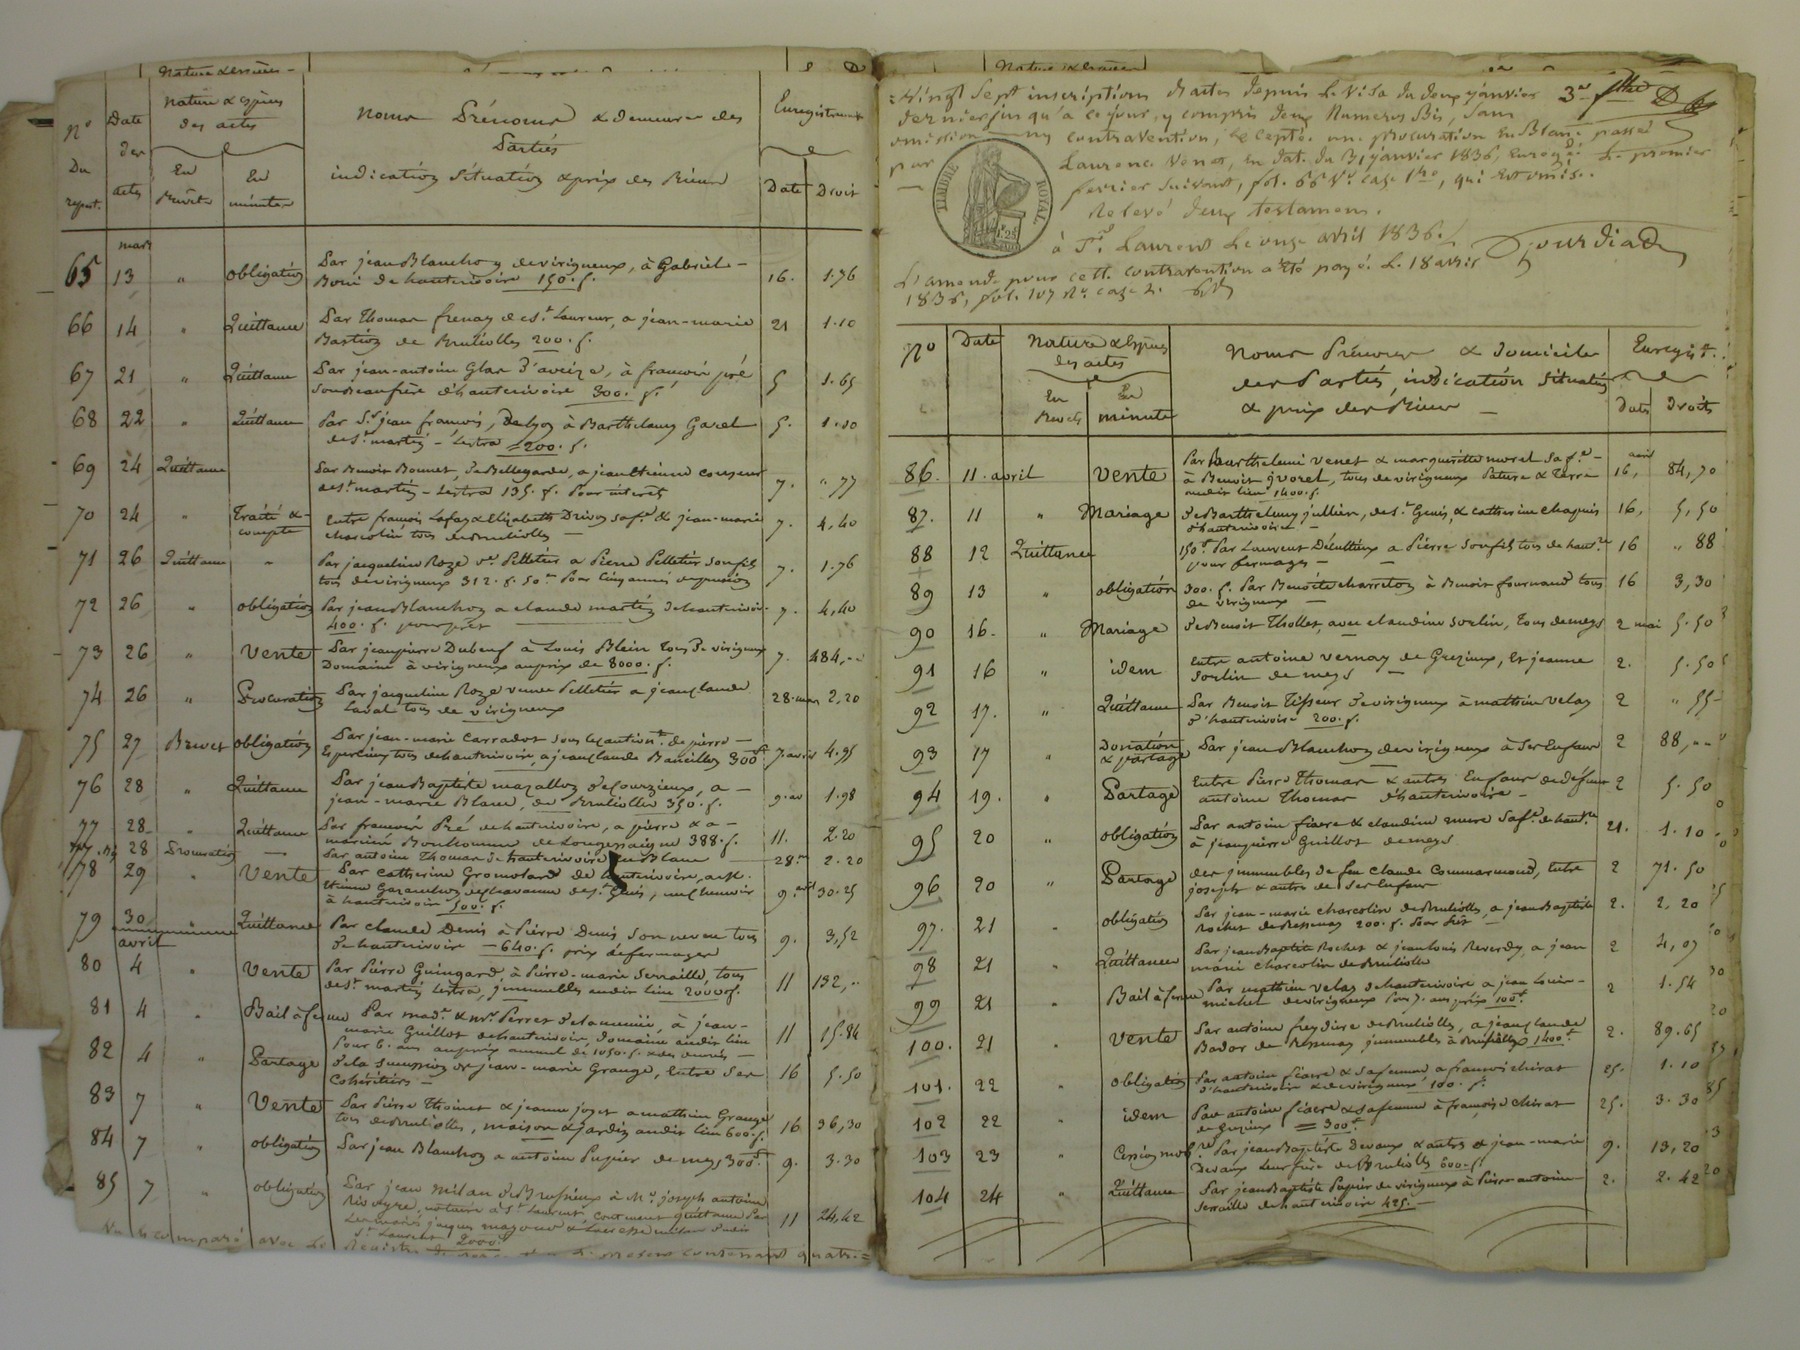 nature & espèces
N° Du repert.
Date des actes
nature & espèces des actes
En Brevets
En minutes
Noms Prénoms & demeures des Parties
indication situation & prix des Biens
Enregistrement
Date Droit
mars
65 13 " obligation Par jean Blanchon de virigneux, à Gabriel 16. 1.76
de hauterivoire 150. f.
66 14 " Quittance Par Thomas frenay de St. Laurent, a jean-marie 21 1.10
Bastion de Brullioles 200. f.
67 21 " Quittance Par jean-antoine Glas d'aveize, à françois pré 5 1.65
son Beaufrère d'hauterivoire 300. f.
68 22 " Quittance Par Sr. jean françois, De lyon à Barthelemy Gorel 5. 1.10
de St. martin-Lestra 200. f.
69 24 Quittance Par Benoit Bonnet, de Bellegarde, a jean Etienne
de St. martin-Lestra 135. f. Pour intérêts 7. " 77
70 24 " Traité & compte Entre françois Lafay & Elizabeth Drivon sa fe. & jean-marie 7. 4,40
charcolin tous de Brullioles
71 26 Quittance " Par jacqueline Roze ve. Pelletier a Pierre Pelletier son fils 7. 1.76
tous de virigneux 312. f. 50 c. Pour cinq années de pension
72 26 " obligation Par jean Blanchon a claude martin d'hauterivoire 7. 4,40
400. f. pour prêt
73 26 " Vente Par jean pierre Dubeuf à Louis Blein tous de virigneux 7. 484,--
Domaine à virigneux au prix de 8000. f.
74 26 " Procuration Par jacqueline Roze veuve Pelletier a jean claude 28. mars 2,20
Laval tous de virigneux
75 27 Brevet obligation Par jean-marie Carradot sous le caution.t de pierre 7. avril 4.95
tous d'hauterivoire, a jean claude 300 f.
76 28 " Quittance Par jean Baptiste mazallon de fourzieux, a 9. av 1.98
jean-marie Blanc, de Brullioles 350. f.
77 28 " Quittance Par françois Pré de hauterivoire, a pierre & a 11. 2.20
marien Bonhomme de Longessaigne 388. f.
77. bis 28 Procuration Par antoine Thomas d'hauterivoire en Blanc 28 2.20
78 29 " Vente Par Catherine Gromolard de hauterivoire, a Me. 9. avl 30.25
de St. Genis,
à hauterivoire 500. f.
79 30 " Quittance Par claude Denis à Pierre Denis son neveu tous 9. 3,52
d'hauterivoire 640. f. prix de fermages
avril
80 4 " Vente Par Pierre Guingard à Pierre-marie Serraille, tous 11 132,"
de St. martin Lestra, jmmeubles audit lieu 2000 f.
81 4 " Bail à ferme Par made. & mr. Perret à jean- 11 15.84
marie Guillot d'hauterivoire, domaine audit lieu
Pour 6. ans au prix annuel de 1050. f. & des denrées
82 4 " Partage de la succession de jean-marie Grange, Entre Ses 16 5.50
Cohéritiers
83 7 " Vente Par Pierre Thoinet & jeanne jozet a mathieu Grange 16 36,30
tous de Brullioles, maison & jardin audit lieu 600. f.
84 7 " obligation Par jean Blanchon a antoine Pupier de meys 300 f. 9. 3.30
85 7 " obligation Par jean Milan de Brussieux à Me. joseph antoine 11 24,42
Rivoyre, notaire à St. Laurent, Contenant Quittance Par
Les mariés jacques & Milan dudit
St. Laurent 2000 f.
Vu & comparé avec Le Registre
présent contenant quatre=
=Vingt Sept inscriptions d'actes depuis Le Visa du deux janvier
dernier jusqu'à ce jour, y compris deux Numeros Bis, sans
omission ny contravention, excepté une procuration En Blanc passée
par Laurence Venet, en date du 31 janvier 1836, Enregé. Le premier
fevrier suivant, fol. 66 Vo. case 1re, qui est omise.
Relevé deux testamens.
à St. Laurent Le onze avril 1836.
Jourdia
L'amende pour cette contravention a été payé Le 18 avril
1836, fol. 107 Ro. case 2.
TIMBRE ROYAL
N° Date
Nature & Espèces des actes
En Brevets
En minute
Noms Prénoms & domicile
des Parties, indication situation
& prix des Biens
Enregist.
Date Droits
86. 11. avril Vente Par Barthelemi Venet & marguerite morel sa fe. avril 16, 84,70
à Benoit gvorel, tous de virigneux Pature & Terre
audit lieu 1400. f.
87. 11 " Mariage de Barthelemy jullien, de St. Genis, & catherine chapuis 16, 5,50
d'hauterivoire
88 12 Quittance 150 f. Par Laurent a Pierre son fils tous de haut.re 16 " 88
pour fermages
89 13 " obligation 300. f. Par Benoite charreton à Benoit fournand tous 16 3,30
de virigneux
90 16. " Mariage de Benoit Thollet, avec claudine Sorlin, tous de meys 2 mai 5.50
91 16 " idem Entre antoine Vernay de Grezieux, Et jeanne 2. 5.50
Sorlin de meys
92 17. " Quittance Par Benoit Tisseur de virigneux à mathieu Velay 2 " 55
d'hauterivoire 200. f.
93 17 " Donation & partage Par jean Blanchon de virigneux à Ses Enfans 2 88,--
94 19. " Partage Entre Pierre Thomas & autres Enfans de défunt 2 5.50
antoine Thomas d'hauterivoire
95 20 " obligation Par antoine fiacre & claudine sa fe. d'haut.re 21. 1.10
à jean pierre Guillot de meys
96 20 " Partage des jmmeubles de feu Claude Commarmond, Entre 2 71.50
joseph & autres de Ses Enfans
97. 21 " obligation Par jean-marie charcolin de Brullioles, a jean Baptiste 2. 2,20
Rochet de Bessenay 200. f. Pour Prêt
98 21 " Quittance Par jean Baptiste Rochet & jean louis Reverdy, a jean 2 4,07
marie charcolin de Brullioles
99 21 " Bail à ferme Par mathieu Velay d'hauterivoire a jean Louis 2 1.54
michel de virigneux Pour 7. ans prix 100 f.
100. 21 " Vente Par antoine freydière de Brullioles, a jean claude 2. 89.65
Bador de Bessenay jmmeubles à Brullioles 1400 f.
101. 22 " obligation Par antoine fiacre & sa femme, a françois chirat 25. 1.10
d'hauterivoire & de virigneux 100. f.
102 22 " idem Par antoine fiacre & sa femme à françoise chirat 25. 3.30
de Grezieux = 300 f.
103 23 " Cession Par jean Baptiste Devaux & autres & jean-marie 9. 13,20
Devaux leur frère de Brullioles 600. f.
104 24 " Quittance Par jean Baptiste Pupier de virigneux à Pierre antoine 2. 2.42
Serraille de hauterivoire 425.